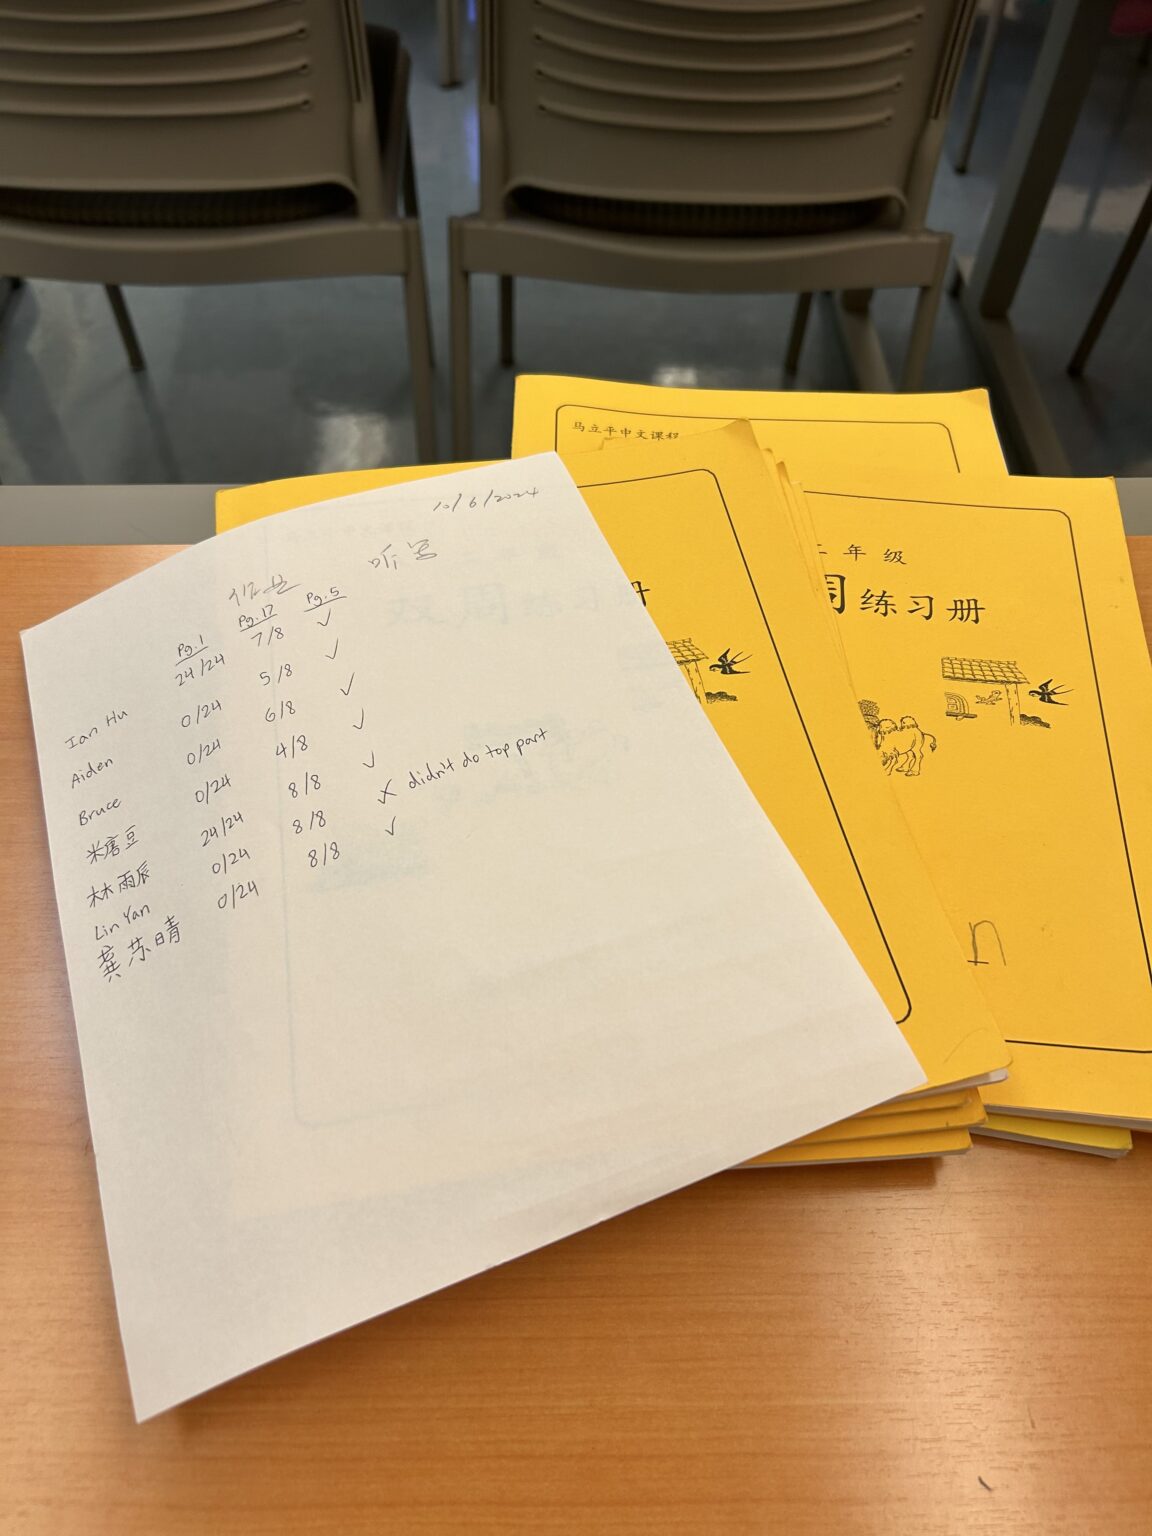 10/6/2024
作业 听写
Pg.1 Pg.12 Pg.5
Ian Hu 24/24 7/8 ✓
Aiden 0/24 5/8 ✓
Bruce 0/24 6/8 ✓
米唐豆 0/24 4/8 ✓
林雨辰 24/24 8/8 ✓
Lin Yan 0/24 8/8 ✗ didn't do top part
龚苏晴 0/24 8/8 ✓
马立平中文课程
二年级
周练习册
册
n